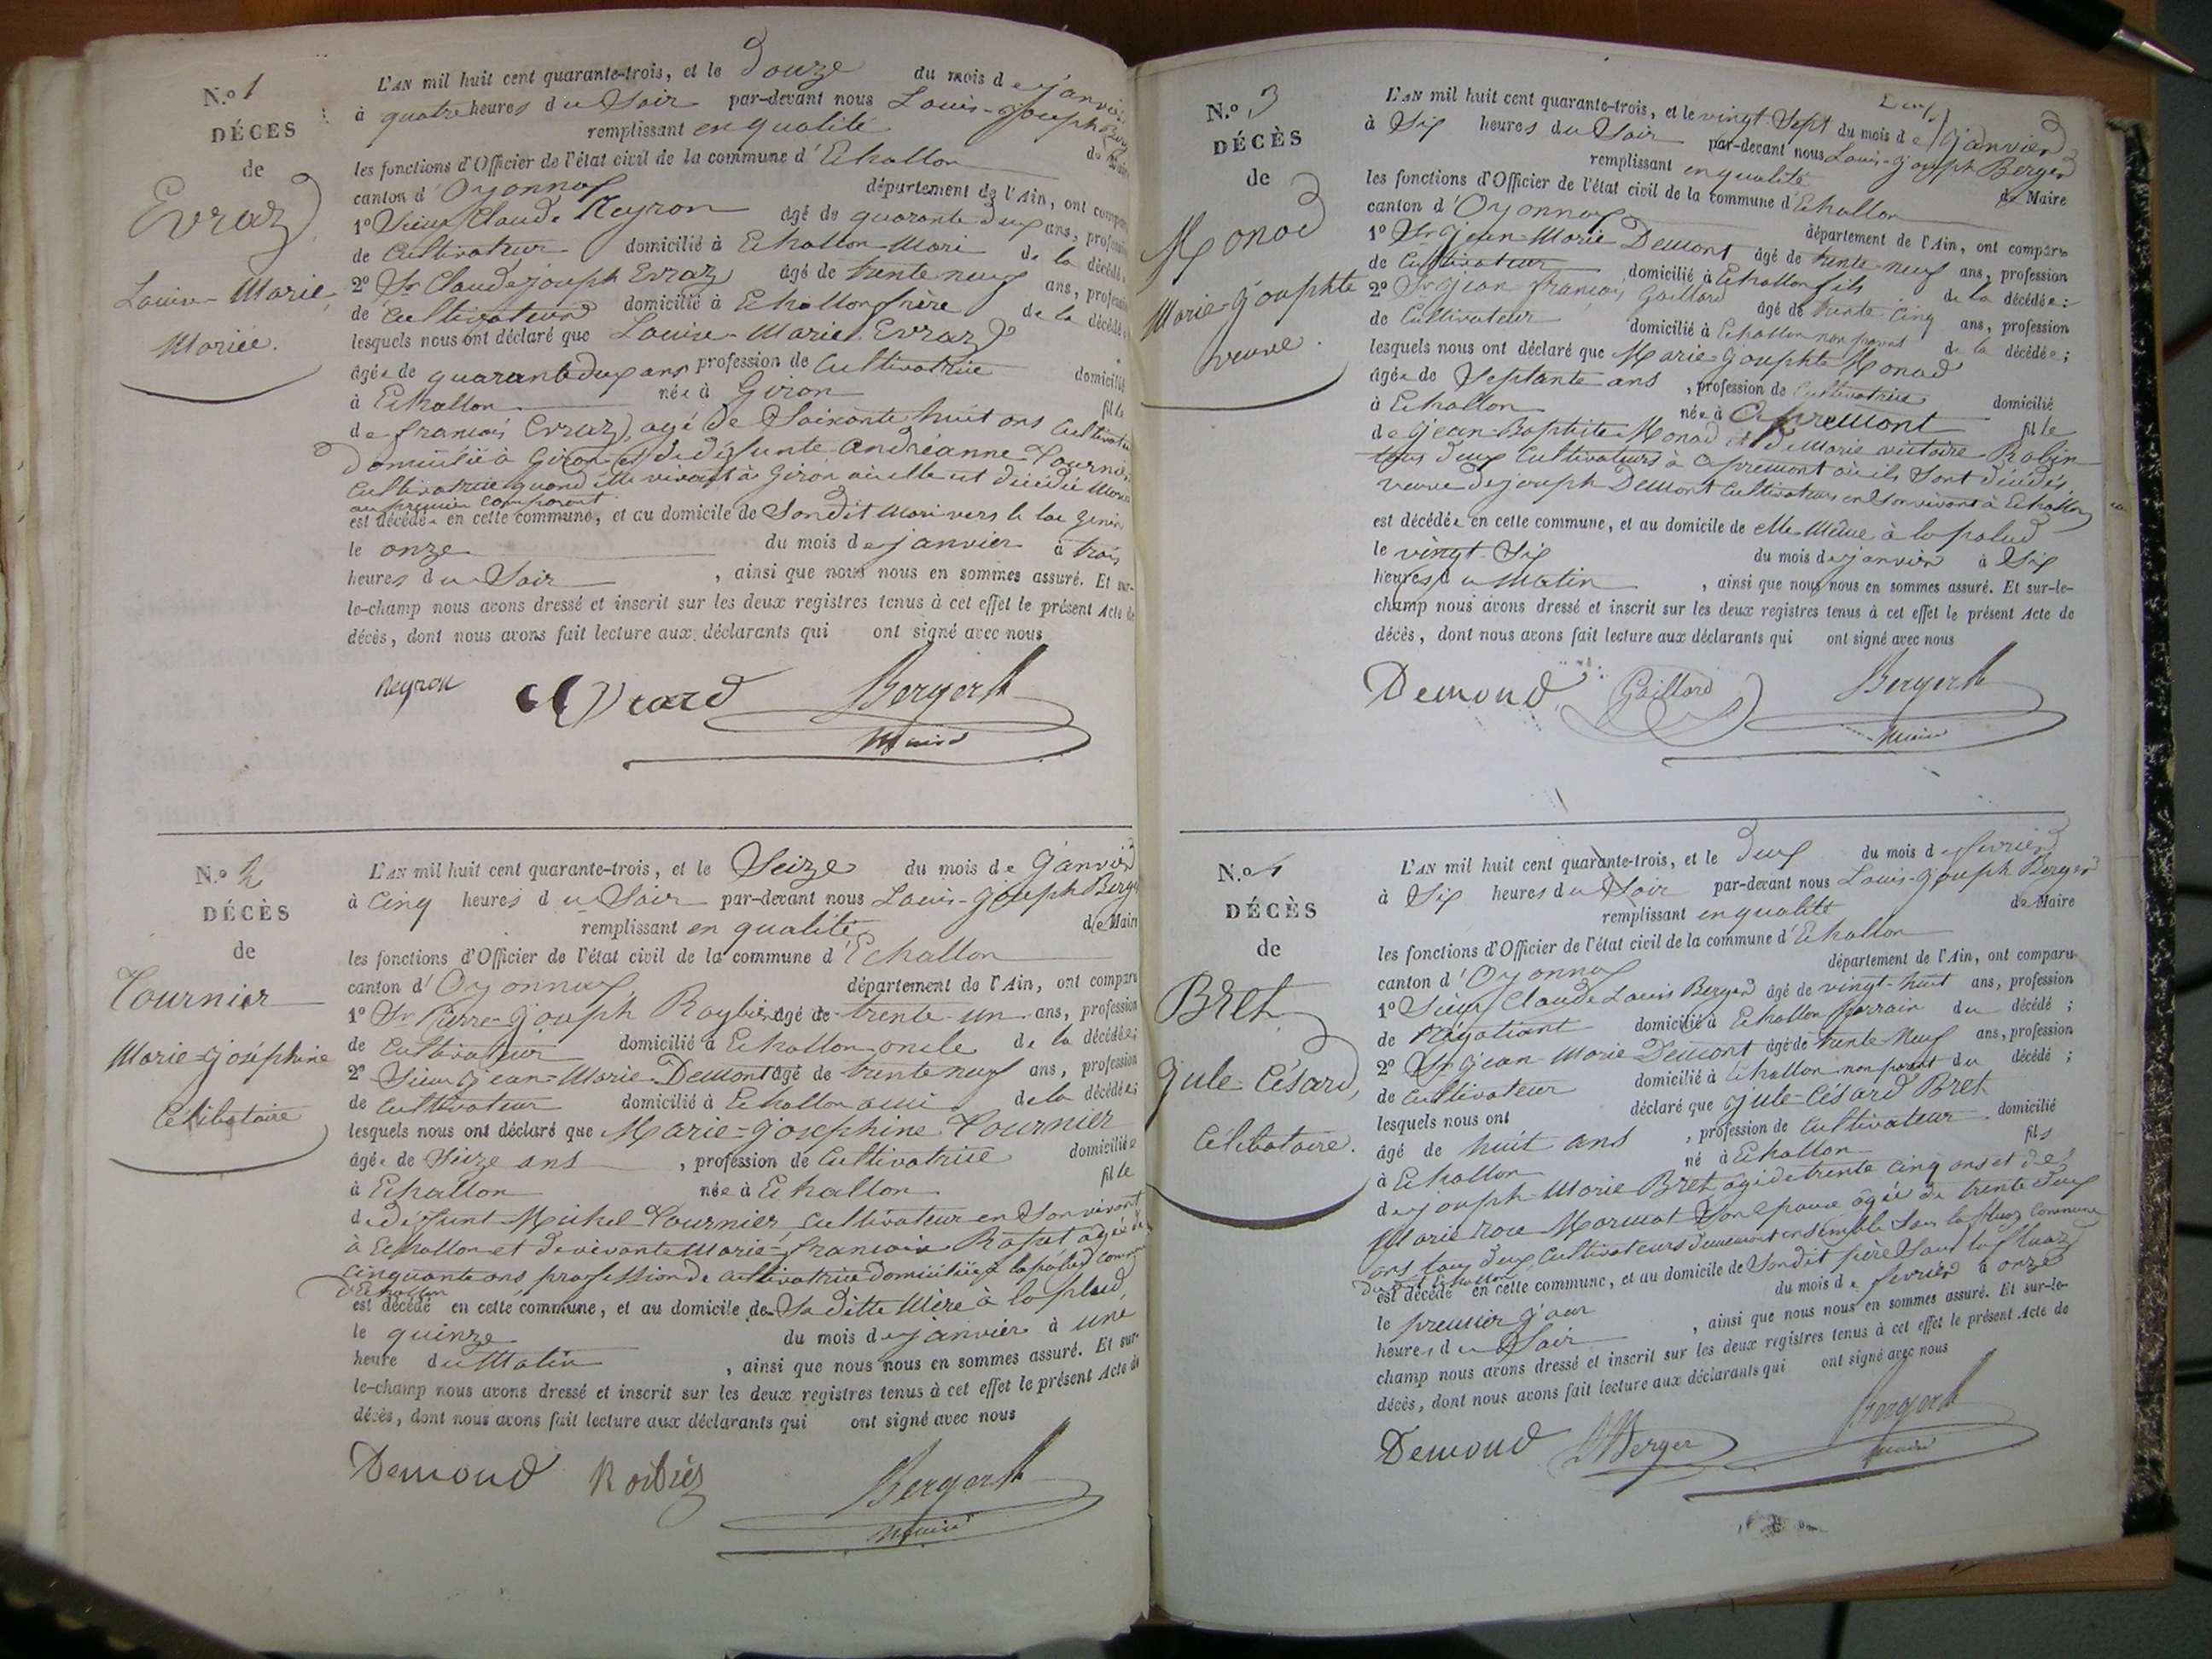 N.º 1
DÉCES
de
Evraz
Louise-Marie
Mariée.
L'AN mil huit cent quarante-trois, et le Douze du mois de janvier
à quatre heures du Soir par-devant nous Louis-Joseph Berger
remplissant en qualité de Maire
les fonctions d'Officier de l'état civil de la commune d'Echallon
canton d'Oyonnax département de l'Ain, ont comparu
1º Sieur Claude Reyron âgé de quarante deux ans, profession
de Cultivateur domicilié à Echallon Mari de la décédée
2º Sr Claude joseph Evraz âgé de trente neuf ans, profession
de Cultivateur domicilié à Echallon frère de la décédée
lesquels nous ont déclaré que Louise-Marie Evraz
âgée de quarante deux ans profession de Cultivatrice domicilié
à Echallon née à Giron fille
de francois Evraz, agé de Soixante huit ans Cultivateur
Domicilié à Giron et de défunte andréanne Tournier
Cultivatrice quand elle vivait à Giron où elle est décédée Mariée
au premier Comparant
est décédée en cette commune, et au domicile de Son dit Mari vers le lac genin
le onze du mois de janvier à trois
heures du Soir , ainsi que nous nous en sommes assuré. Et sur-
le-champ nous avons dressé et inscrit sur les deux registres tenus à cet effet le présent Acte de
décès, dont nous avons fait lecture aux déclarants qui ont signé avec nous
Reyron Bergert
Maire
N.º 2
DÉCÈS
de
Tournier
Marie-joséphine
Célibataire
L'AN mil huit cent quarante-trois, et le Seize du mois de Janvier
à Cinq heures du Soir par-devant nous Louis-Joseph Berger
remplissant en qualité de Maire
les fonctions d'Officier de l'état civil de la commune d'Echallon
canton d'Oyonnax département de l'Ain, ont comparu
1º Sr Pierre-Joseph Roybier âgé de trente-un ans, profession
de Cultivateur domicilié à Echallon oncle de la décédée;
2º Sieur Jean-Marie Demont âgé de trente neuf ans, profession
de Cultivateur domicilié à Echallon ami de la décédée;
lesquels nous ont déclaré que Marie-Josephine Tournier
âgée de Seize ans , profession de Cultivatrice domiciliée
à Echallon née à Echallon fille
de défunt Michel Tournier, Cultivateur en Son vivant
à Echallon et de vivante Marie-francoise Rapat agée de
Cinquante ans profession de Cultivatrice domiciliée à la palud Commune
d'Echallon
est décédé en cette commune, et au domicile de Sa ditte Mère à la plaud,
le quinze du mois de janvier à une
heure du Matin , ainsi que nous nous en sommes assuré. Et sur-
le-champ nous avons dressé et inscrit sur les deux registres tenus à cet effet le présent Acte de
décès, dont nous avons fait lecture aux déclarants qui ont signé avec nous
Demond Roibiez Bergert
Maire
Deux
N.º 3
DÉCÈS
de
Monod
Marie-Josephte
veuve.
L'AN mil huit cent quarante-trois, et le vingt Sept du mois de Janvier
à Six heures du Soir par-devant nous Louis-Joseph Berger
remplissant en qualité de Maire
les fonctions d'Officier de l'état civil de la commune d'Echallon
canton d'Oyonnax département de l'Ain, ont comparu
1º Sr Jean-Marie Demont âgé de trente-neuf ans, profession
de Cultivateur domicilié à Echallon fils de la décédée;
2º Sr Jean francois Gaillard âgé de trente-Cinq ans, profession
de Cultivateur domicilié à Echallon non parent de la décédée;
lesquels nous ont déclaré que Marie-Josephte Monod
âgée de Septante ans , profession de Cultivatrice domicilié
à Echallon née à Apremont fille
de Jean-Baptiste Monod et de Marie victoire Robin
tous deux Cultivateurs à apremont où ils Sont décédés,
veuve de joseph Demont Cultivateur en Son vivant à Echallon
est décédée en cette commune, et au domicile de elle-Même à la palud
le vingt-Six du mois de janvier à Six
heures du Matin , ainsi que nous nous en sommes assuré. Et sur-le-
champ nous avons dressé et inscrit sur les deux registres tenus à cet effet le présent Acte de
décès, dont nous avons fait lecture aux déclarants qui ont signé avec nous
Demond Gaillard Bergert
Maire
N.º 4
DÉCÈS
de
Bret
Jule-César,
Célibataire.
L'AN mil huit cent quarante-trois, et le Deux du mois de fevrier
à Six heures du Soir par-devant nous Louis-Joseph Berger
remplissant en qualité de Maire
les fonctions d'Officier de l'état civil de la commune d'Echallon
canton d'Oyonnax département de l'Ain, ont comparu
1º Sieur Claude Louis Berger âgé de vingt-huit ans, profession
de Négotiant domicilié à Echallon parrain du décédé;
2º Sr Jean-Marie Demont âgé de trente-Neuf ans, profession
de Cultivateur domicilié à Echallon non parent du décédé;
lesquels nous ont déclaré que Jule-César Bret
âgé de huit ans , profession de Cultivateur domicilié
à Echallon né à Echallon fils
de joseph-Marie Bret âgé de trente Cinq ans et de
Marie rose Marmot Son épouse âgée de trente deux
ans, tous deux Cultivateurs demeurant ensemble Sous la Commune
du dit Echallon
est décédé en cette commune, et au domicile de Son dit père Sous la
le premier jour du mois de fevrier à onze
heures du Soir , ainsi que nous nous en sommes assuré. Et sur-le-
champ nous avons dressé et inscrit sur les deux registres tenus à cet effet le présent Acte de
décès, dont nous avons fait lecture aux déclarants qui ont signé avec nous
Demond Berger Bergert
Maire